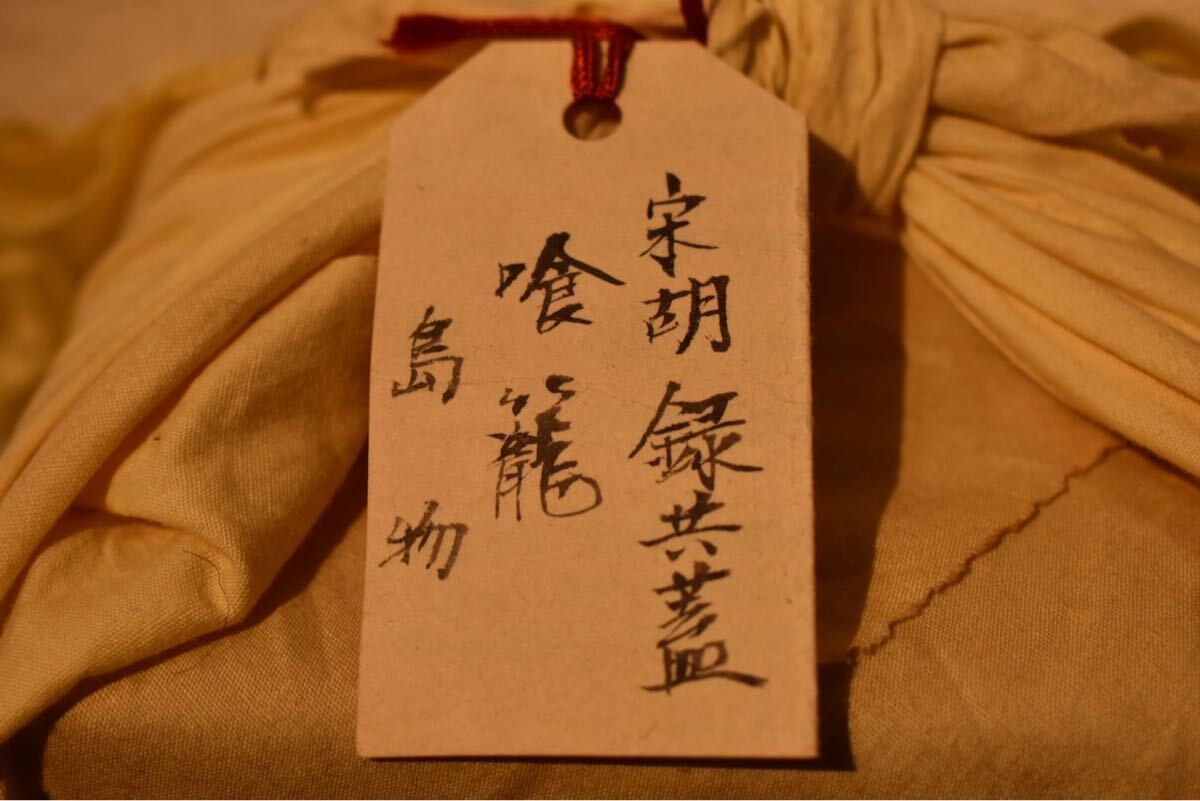 宋胡録共蓋
喰籠
島物